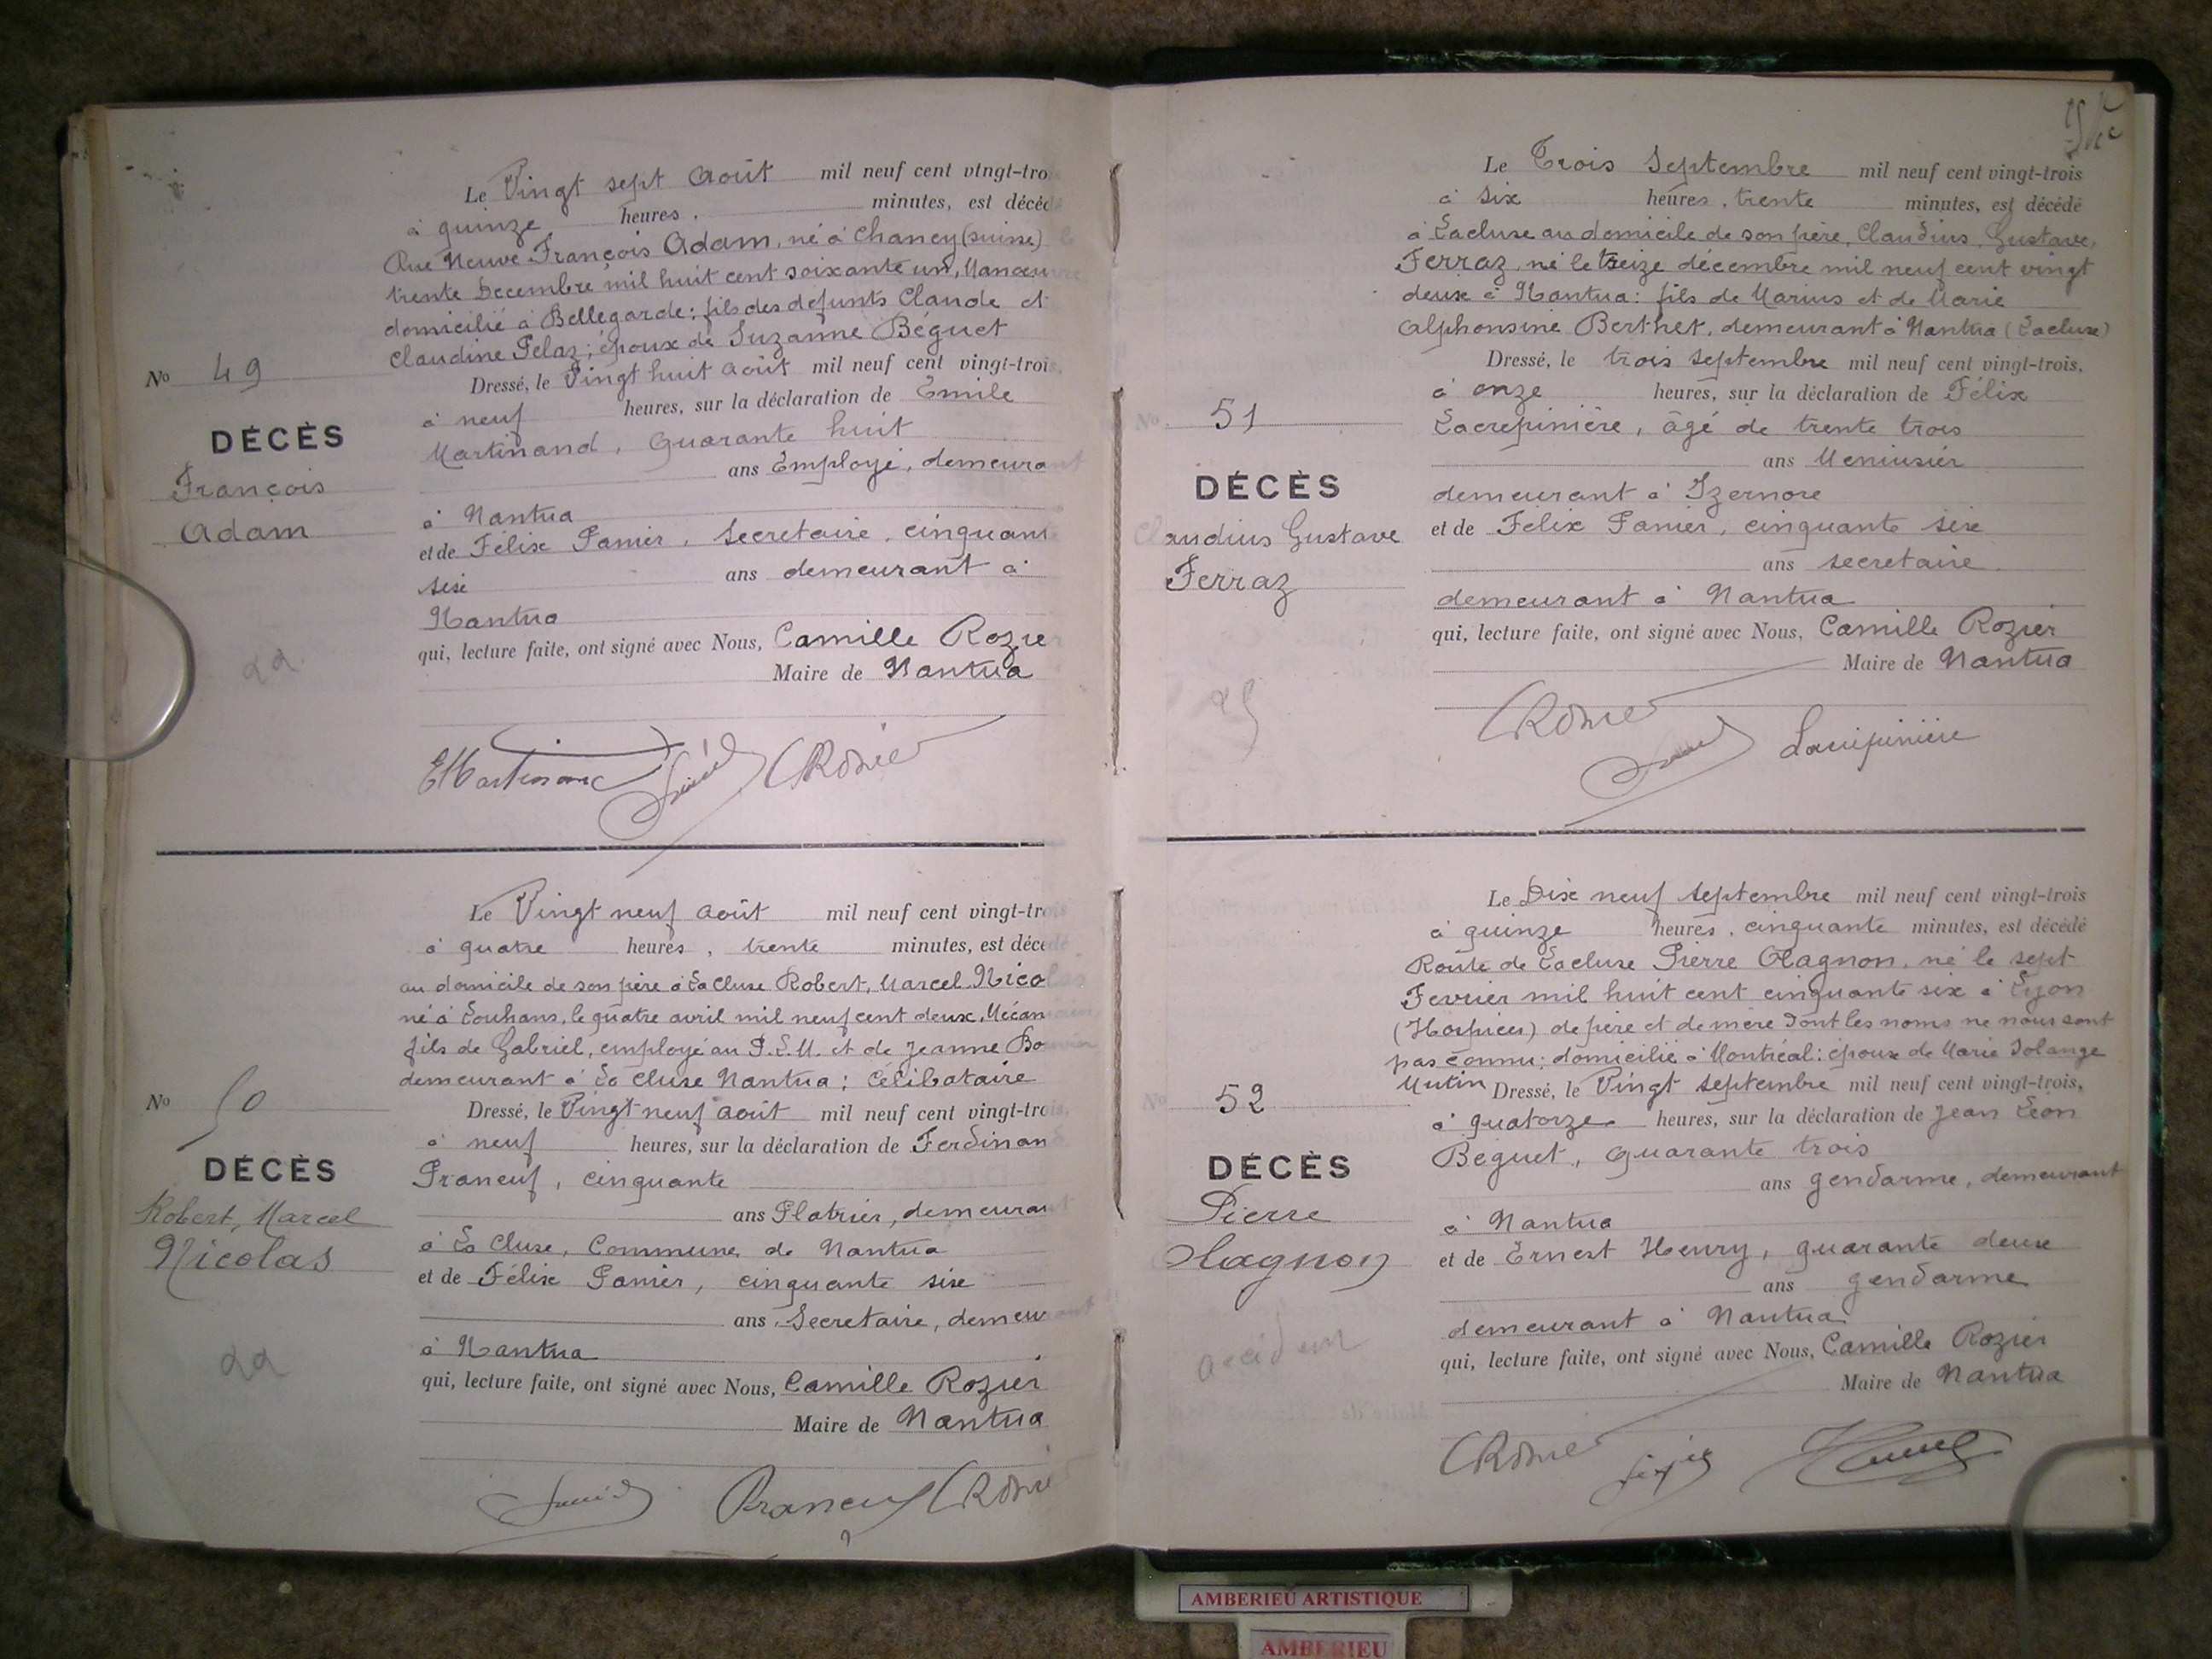 Le Vingt sept Août mil neuf cent vingt-tro
à quinze heures, minutes, est décéd
Rue Neuve François Adam, né à Chancy (Suisse) le
trente Décembre mil huit cent soixante un, Manœuvre
domicilié à Bellegarde; fils des défunts Claude et
Claudine Pelaz; époux de Suzanne Béguet
No 49
Dressé, le Vingt huit Août mil neuf cent vingt-trois,
à neuf heures, sur la déclaration de Emile
DÉCÈS
Martinand, Quarante huit
ans Employé, demeurant
François
Adam
à Nantua
et de Félix Panier, Secretaire, cinquant
six ans demeurant à
Nantua
qui, lecture faite, ont signé avec Nous, Camille Rozier
22
Maire de Nantua
EMartinand CRozier
Le Vingt neuf Août mil neuf cent vingt-trois
à quatre heures, trente minutes, est décédé
au domicile de son père à La Cluse Robert, Marcel Nicolas
né à Louhans, le quatre avril mil neuf cent deux, Mécan
fils de Gabriel, employé au P.L.M. et de Jeanne Bouvier
demeurant à La Cluse Nantua; Célibataire
No 50
Dressé, le Vingt neuf Août mil neuf cent vingt-trois,
à neuf heures, sur la déclaration de Ferdinand
DÉCÈS
Praneuf, cinquante
ans Platrier, demeurant
Robert, Marcel
Nicolas
à La Cluse, Commune de Nantua
et de Félix Panier, cinquante six
ans, Secretaire, demeurant
22
à Nantua
qui, lecture faite, ont signé avec Nous, Camille Rozier
Maire de Nantua
Praneuf CRozier
Le Trois Septembre mil neuf cent vingt-trois
à six heures, trente minutes, est décédé
à Lacluse au domicile de son père, Claudius, Gustave,
Ferraz, né le treize décembre mil neuf cent vingt
deux à Nantua: fils de Marius et de Marie
Alphonsine Berthet, demeurant à Nantua (Lacluse)
Dressé, le trois septembre mil neuf cent vingt-trois,
à onze heures, sur la déclaration de Félix
No 51
Lacrepinière, âgé de trente trois
ans Menuisier
DÉCÈS
demeurant à Izernore
Claudius Gustave
Ferraz
et de Félix Panier, cinquante six
ans secretaire
demeurant à Nantua
qui, lecture faite, ont signé avec Nous, Camille Rozier
Maire de Nantua
CRozier Lacrepinière
Le Dix neuf septembre mil neuf cent vingt-trois
à quinze heures, cinquante minutes, est décédé
Route de Lacluse Pierre Olagnon, né le sept
Fevrier mil huit cent cinquante six à Lyon
(Hospices) de père et de mère dont les noms ne nous sont
pas connu; domicilié à Montréal: époux de Marie Solange
Mutin Dressé, le Vingt septembre mil neuf cent vingt-trois,
No 52
à quatorze heures, sur la déclaration de Jean Léon
Beguet, Quarante trois
ans gendarme, demeurant
DÉCÈS
Pierre
Olagnon
à Nantua
et de Ernest Henry, quarante deux
ans gendarme
demeurant à Nantua
accident
qui, lecture faite, ont signé avec Nous, Camille Rozier
Maire de Nantua
CRozier
AMBERIEU ARTISTIQUE
AMBERIEU